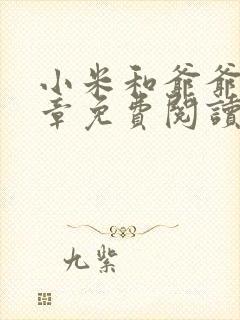 小米和爺爺
章免費閱讀
九紫